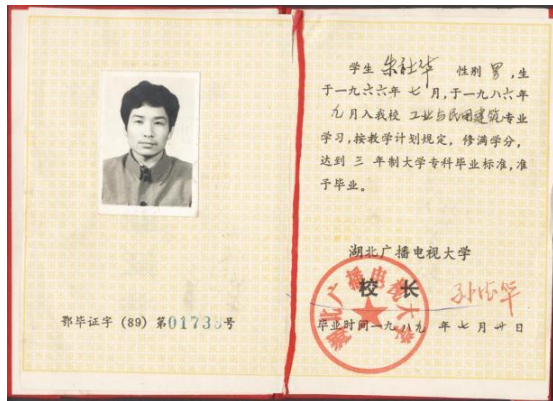 鄂毕证字(89)第01738号
学生 朱社华 性别 男,生
于一九六六年 七 月,于一九八六年
九 月入我校 工业与民用建筑 专业
学习,按教学计划规定,修满学分,
达到 三 年制大学专科毕业标准,准
予毕业。
湖北广播电视大学
校 长
毕业时间一九八九 年 七 月 廿 日
湖北广播电视大学